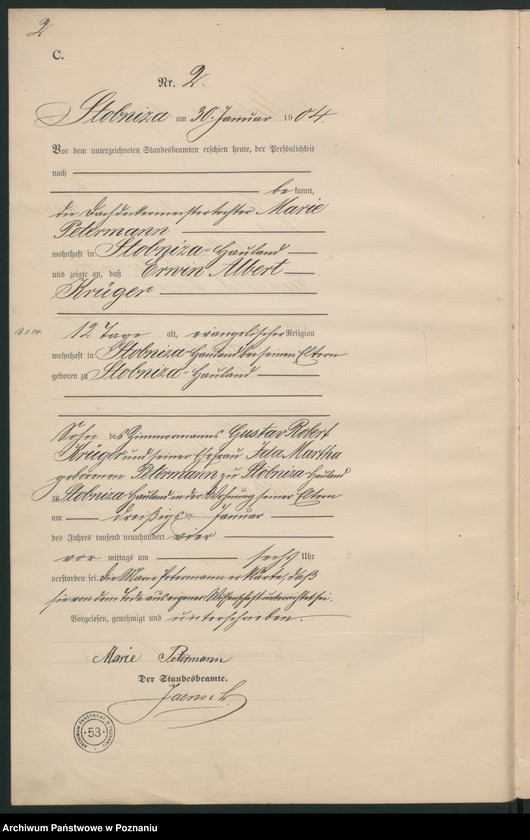 2
C.
Nr. 2.
Stobniza am 30. Januar 1904.
Vor dem unterzeichneten Standesbeamten erschien heute, der Persönlichkeit
nach
be kannt,
die Dachdeckermeistertochter Marie
Petermann
wohnhaft in Stobniza-Hauland
und zeigte an, daß Erwin Albert
Krüger
12 Tage alt, evangelischer Religion
wohnhaft in Stobniza Hauland bei seinen Eltern
geboren zu Stobniza-Hauland
Sohn des Zimmermanns Gustav Robert
Krüger und seiner Ehefrau Ida Martha
geborenen Petermann zu Stobniza-Hauland
zu Stobniza Hauland in der Wohnung seiner Eltern
am dreißigsten Januar
des Jahres tausend neunhundert vier
vor mittags um sechs Uhr
verstorben sei. Die Marie Petermann erklärte, daß
sie von dem Tode aus eigener Wissenschaft unterrichtet sei.
Vorgelesen, genehmigt und unterschrieben.
Marie Petermann
Der Standesbeamte.
ARCHIWUM PAŃSTWOWE W POZNANIU
53
Archiwum Państwowe w Poznaniu